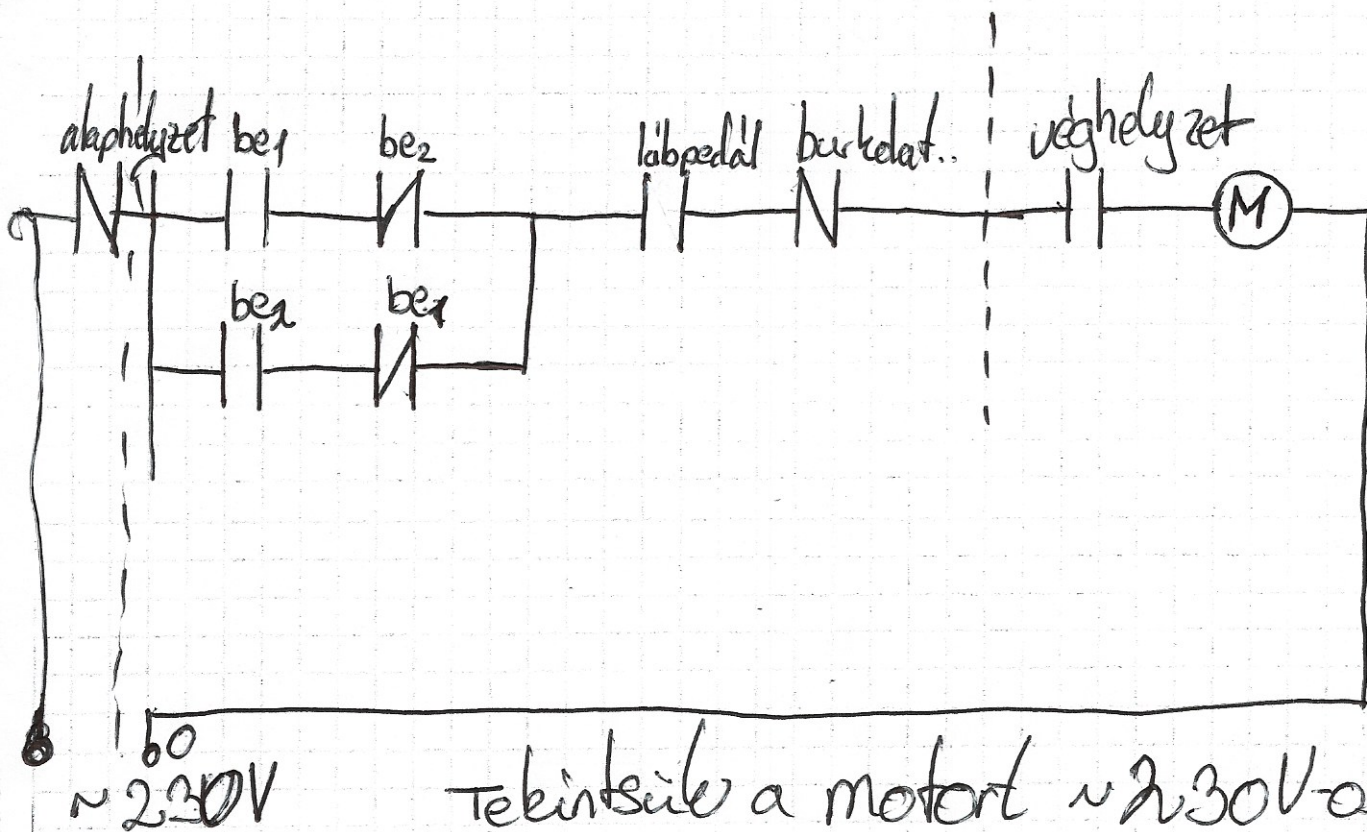 alaphelyzet be1 be2 lábpedál burkolat.. véghelyzet
M
be2 be1
0
~230V Tekintsük a motort ~230V-o